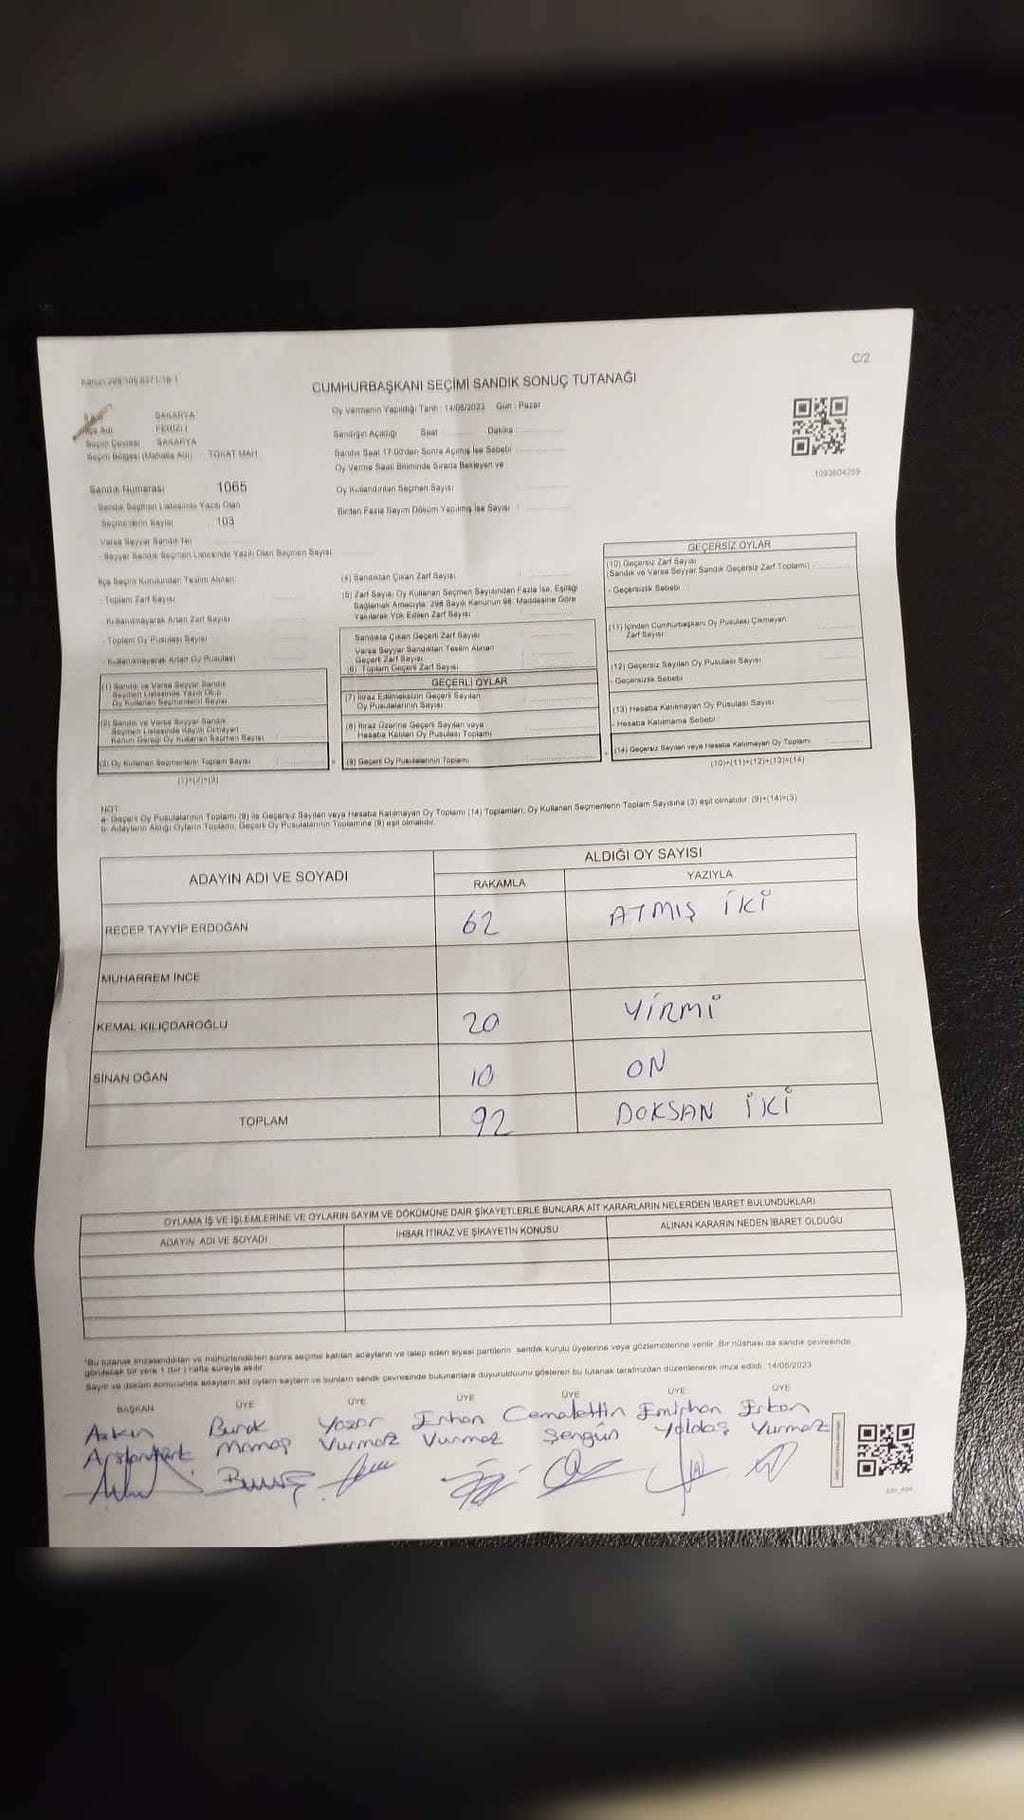 C/2
CUMHURBAŞKANI SEÇİMİ SANDIK SONUÇ TUTANAĞI
SAKARYA
İlçe Adı FERİZLİ
Seçim Çevresi SAKARYA
Seçim Bölgesi (Mahalle Adı) TOKAT MAH.
Oy Vermenin Yapıldığı Tarih : 14/05/2023 Gün : Pazar
Sandığın Açıldığı Saat Dakika
Sandık Saat 17.00'dan Sonra Açılmış İse Sebebi
Oy Verme Saati Bitiminde Sırada Bekleyen ve
Oy Kullandırılan Seçmen Sayısı
Birden Fazla Sayım Döküm Yapılmış İse Sayısı
1093604259
Sandık Numarası 1065
- Sandık Seçmen Listesinde Yazılı Olan
Seçmenlerin Sayısı 103
Varsa Seyyar Sandık No
- Seyyar Sandık Seçmen Listesinde Yazılı Olan Seçmen Sayısı
İlçe Seçim Kurulundan Teslim Alınan:
- Toplam Zarf Sayısı
- Kullanılmayarak Artan Zarf Sayısı
- Toplam Oy Pusulası Sayısı
- Kullanılmayarak Artan Oy Pusulası
(1) Sandık ve Varsa Seyyar Sandık
Seçmen Listesinde Yazılı Olup
Oy Kullanan Seçmenlerin Sayısı
(2) Sandık ve Varsa Seyyar Sandık
Seçmen Listesinde Kayıtlı Olmayan
Kanun Gereği Oy Kullanan Seçmen Sayısı
(3) Oy Kullanan Seçmenlerin Toplam Sayısı
(1)+(2)=(3)
(4) Sandıktan Çıkan Zarf Sayısı
(5) Zarf Sayısı Oy Kullanan Seçmen Sayısından Fazla İse, Eşitliği
Sağlamak Amacıyla; 298 Sayılı Kanunun 98. Maddesine Göre
Yakılarak Yok Edilen Zarf Sayısı
Sandıkta Çıkan Geçerli Zarf Sayısı
Varsa Seyyar Sandıktan Teslim Alınan
Geçerli Zarf Sayısı
(6) Toplam Geçerli Zarf Sayısı
GEÇERLİ OYLAR
(7) İtiraz Edilmeksizin Geçerli Sayılan
Oy Pusulalarının Sayısı
(8) İtiraz Üzerine Geçerli Sayılan veya
Hesaba Katılan Oy Pusulası Toplamı
(9) Geçerli Oy Pusulalarının Toplamı
GEÇERSİZ OYLAR
(10) Geçersiz Zarf Sayısı
(Sandık ve Varsa Seyyar Sandık Geçersiz Zarf Toplamı)
- Geçersizlik Sebebi
(11) İçinden Cumhurbaşkanı Oy Pusulası Çıkmayan
Zarf Sayısı
(12) Geçersiz Sayılan Oy Pusulası Sayısı
- Geçersizlik Sebebi
(13) Hesaba Katılmayan Oy Pusulası Sayısı
- Hesaba Katılmama Sebebi
(14) Geçersiz Sayılan veya Hesaba Katılmayan Oy Toplamı
(10)+(11)+(12)+(13)=(14)
NOT:
a- Geçerli Oy Pusulalarının Toplamı (9) ile Geçersiz Sayılan veya Hesaba Katılmayan Oy Toplamı (14) Toplamları, Oy Kullanan Seçmenlerin Toplam Sayısına (3) eşit olmalıdır. (9)+(14)=(3)
b- Adayların Aldığı Oyların Toplamı, Geçerli Oy Pusulalarının Toplamına (9) eşit olmalıdır.
ADAYIN ADI VE SOYADI
ALDIĞI OY SAYISI
RAKAMLA YAZIYLA
RECEP TAYYİP ERDOĞAN 62 ATMIŞ İKİ
MUHARREM İNCE
KEMAL KILIÇDAROĞLU 20 YİRMİ
SİNAN OĞAN 10 ON
TOPLAM 92 DOKSAN İKİ
OYLAMA İŞ VE İŞLEMLERİNE VE OYLARIN SAYIM VE DÖKÜMÜNE DAİR ŞİKAYETLERLE BUNLARA AİT KARARLARIN NELERDEN İBARET BULUNDUKLARI
ADAYIN ADI VE SOYADI İHBAR İTİRAZ VE ŞİKAYETİN KONUSU ALINAN KARARIN NEDEN İBARET OLDUĞU
*Bu tutanak imzalandıktan ve mühürlendikten sonra seçime katılan adayların ve talep eden siyasi partilerin sandık kurulu üyelerine veya gözlemcilerine verilir. Bir nüshası da sandık çevresinde
görülebilir bir yere 1 (bir) hafta süreyle asılır.
14/05/2023
BAŞKAN ÜYE ÜYE ÜYE ÜYE ÜYE ÜYE
Burak Erhan Cemalettin Emirhan Erkan
Vurmaz Vurmaz Şengün Yoldaş Vurmaz